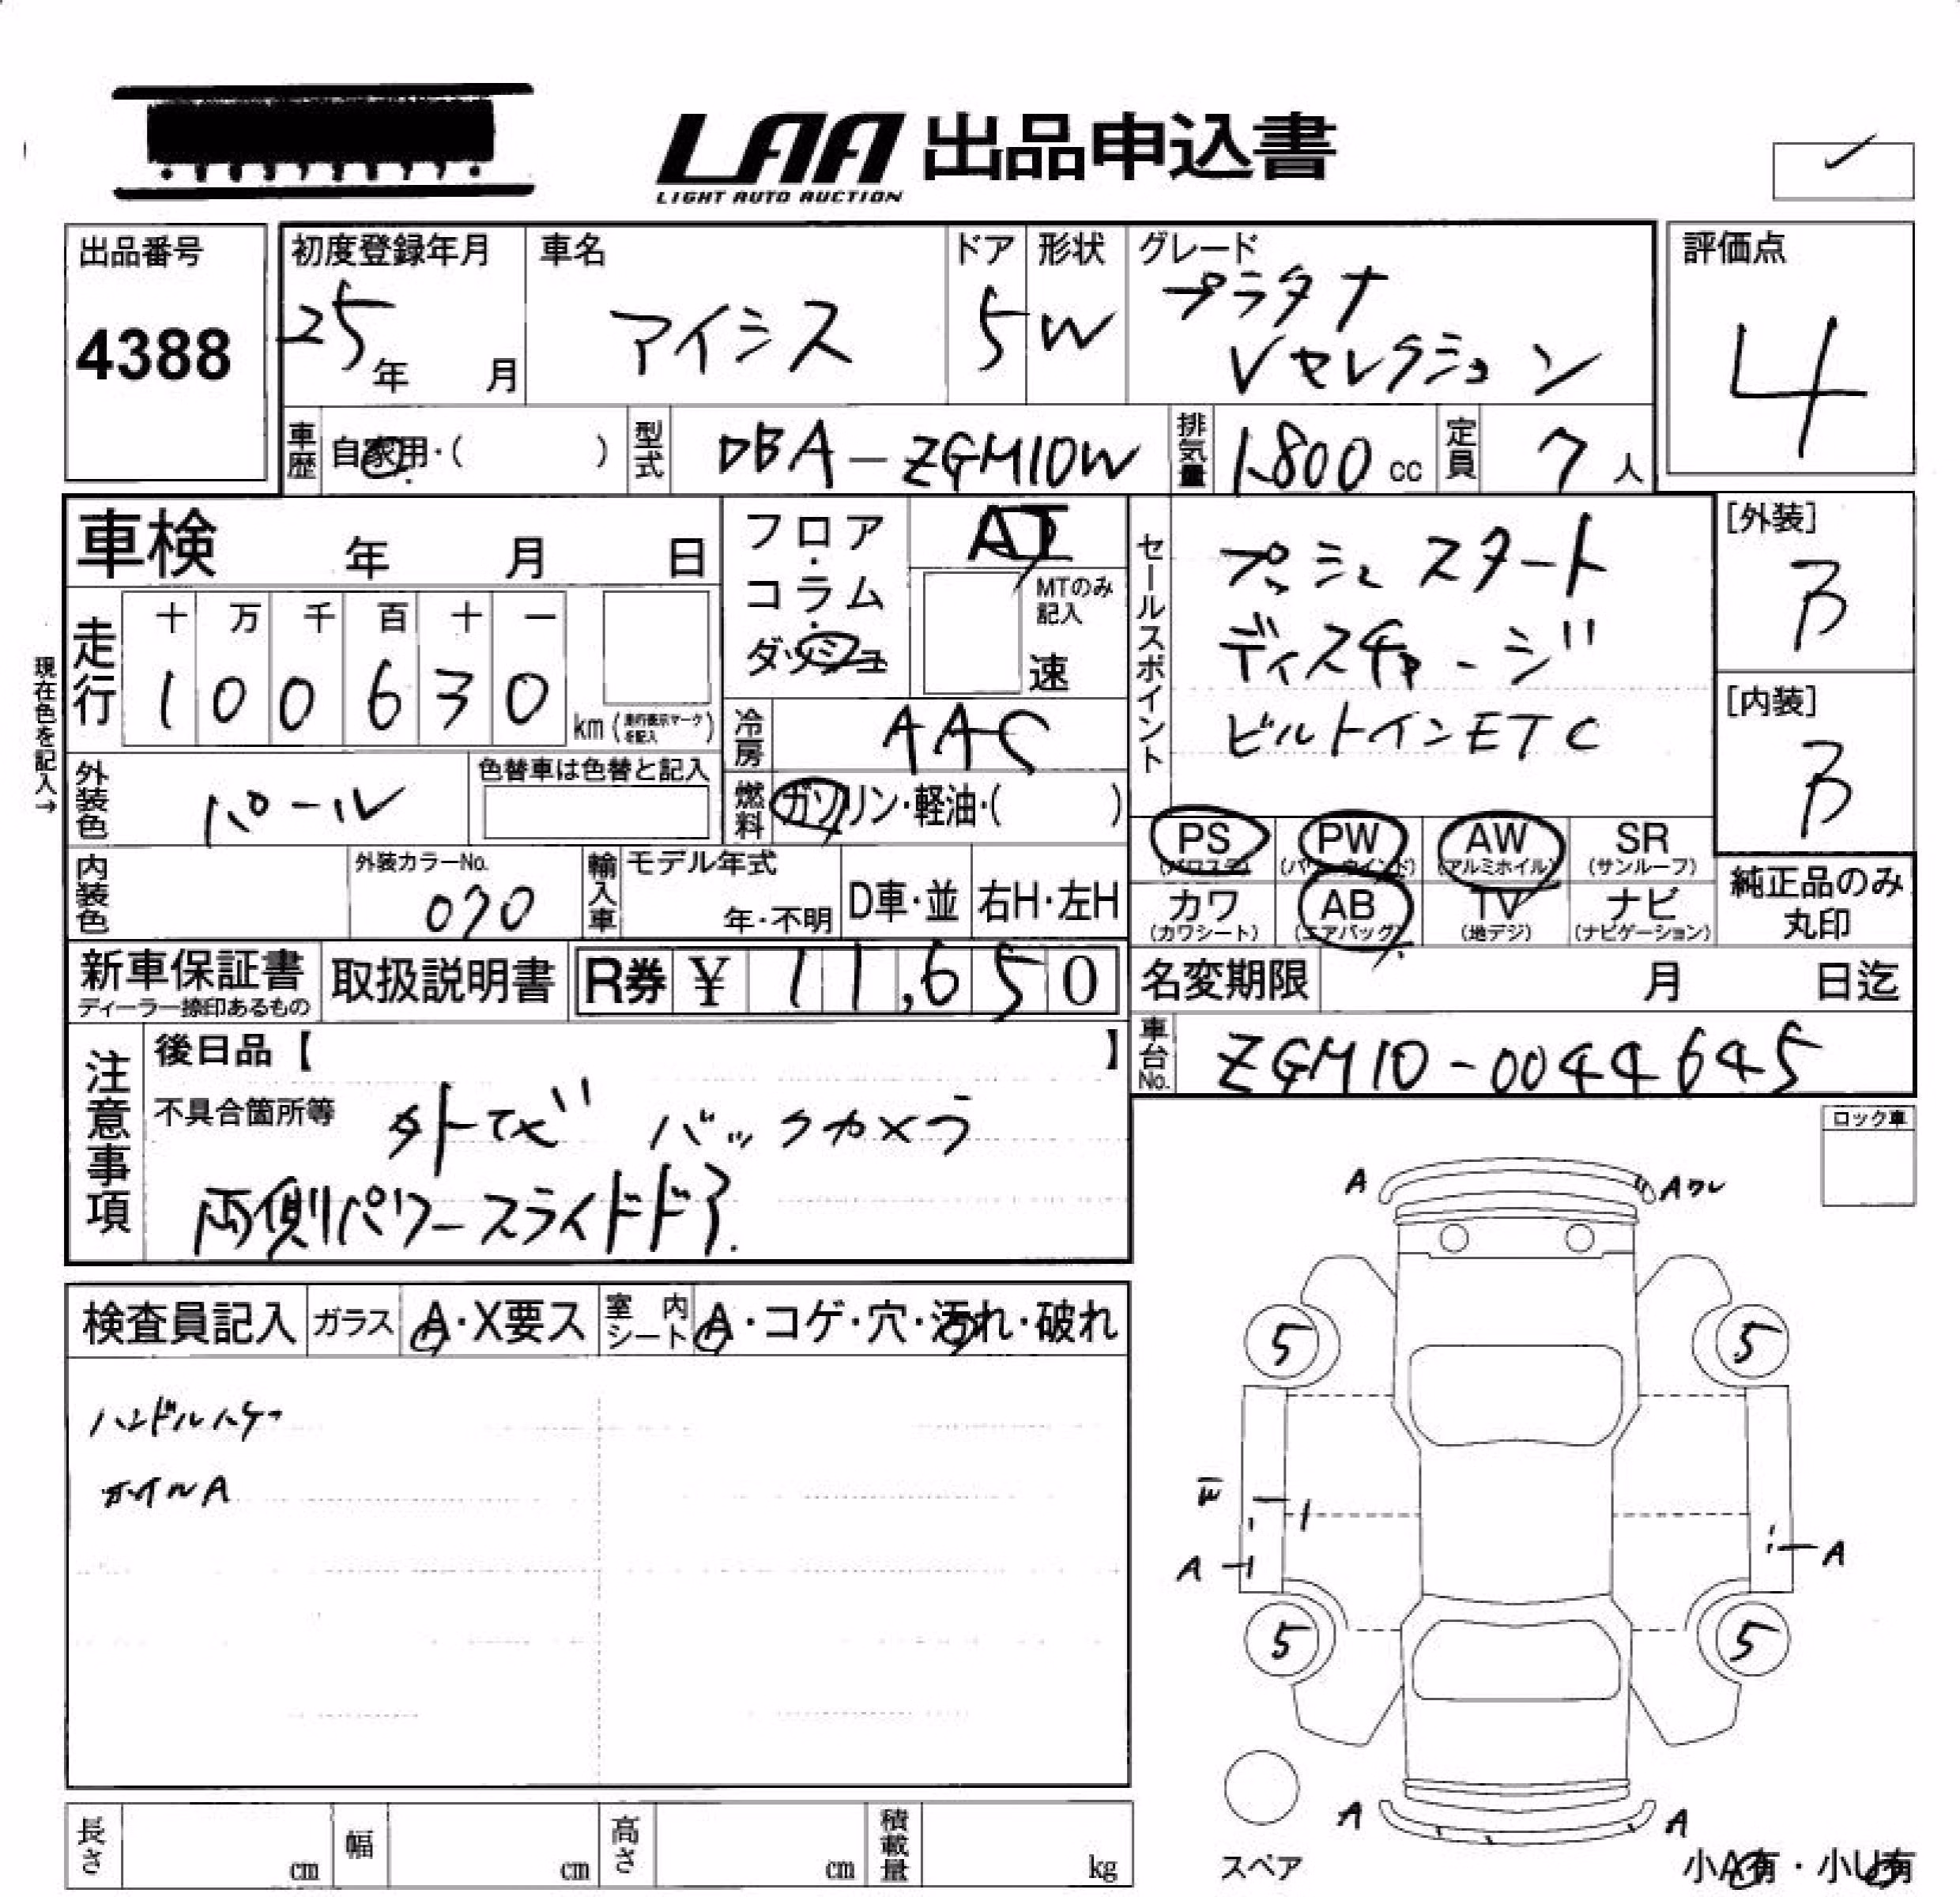 LAA 出品申込書
LIGHT AUTO AUCTION
出品番号
4388
初度登録年月
25年 月
車名
アイシス
ドア
5
形状
W
グレード
プラタナ
Vセレクション
評価点
4
車歴 自家用・( )
型式 DBA-ZGM10W
排気量 1,800 cc
定員 7人
車検 年 月 日
フロア・コラム・ダッシュ
AT
MTのみ記入
速
セールスポイント
プッシュスタート
ディスチャージ
ビルトインETC
[外装]
B
[内装]
B
現在色を記入→
走行
十 万 千 百 十 一
1 0 0 6 3 0
km (走行表示マークを記入)
冷房 AAC
外装色 パール
色替車は色替と記入
燃料 ガソリン・軽油・( )
PS (パワステ)
PW (パワーウインド)
AW (アルミホイル)
SR (サンルーフ)
カワ (カワシート)
AB (エアバッグ)
TV (地デジ)
ナビ (ナビゲーション)
純正品のみ丸印
内装色
外装カラーNo.
070
輸入車
モデル年式
年・不明
D車・並
右H・左H
新車保証書
ディーラー捺印あるもの
取扱説明書
R券 ¥ 11,650
名変期限 月 日迄
車台No. ZGM10-0044645
注意事項
後日品【 】
不具合箇所等
外ナビ バックカメラ
両側パワースライドドア
ロック車
検査員記入
ガラス A・X要ス
室内シート A・コゲ・穴・汚れ・破れ
ハンドルハゲ
ホイルA
A
Aワレ
5
5
A
A
5
5
A
A
スペア
小A有・小U有
長さ cm
幅 cm
高さ cm
積載量 kg